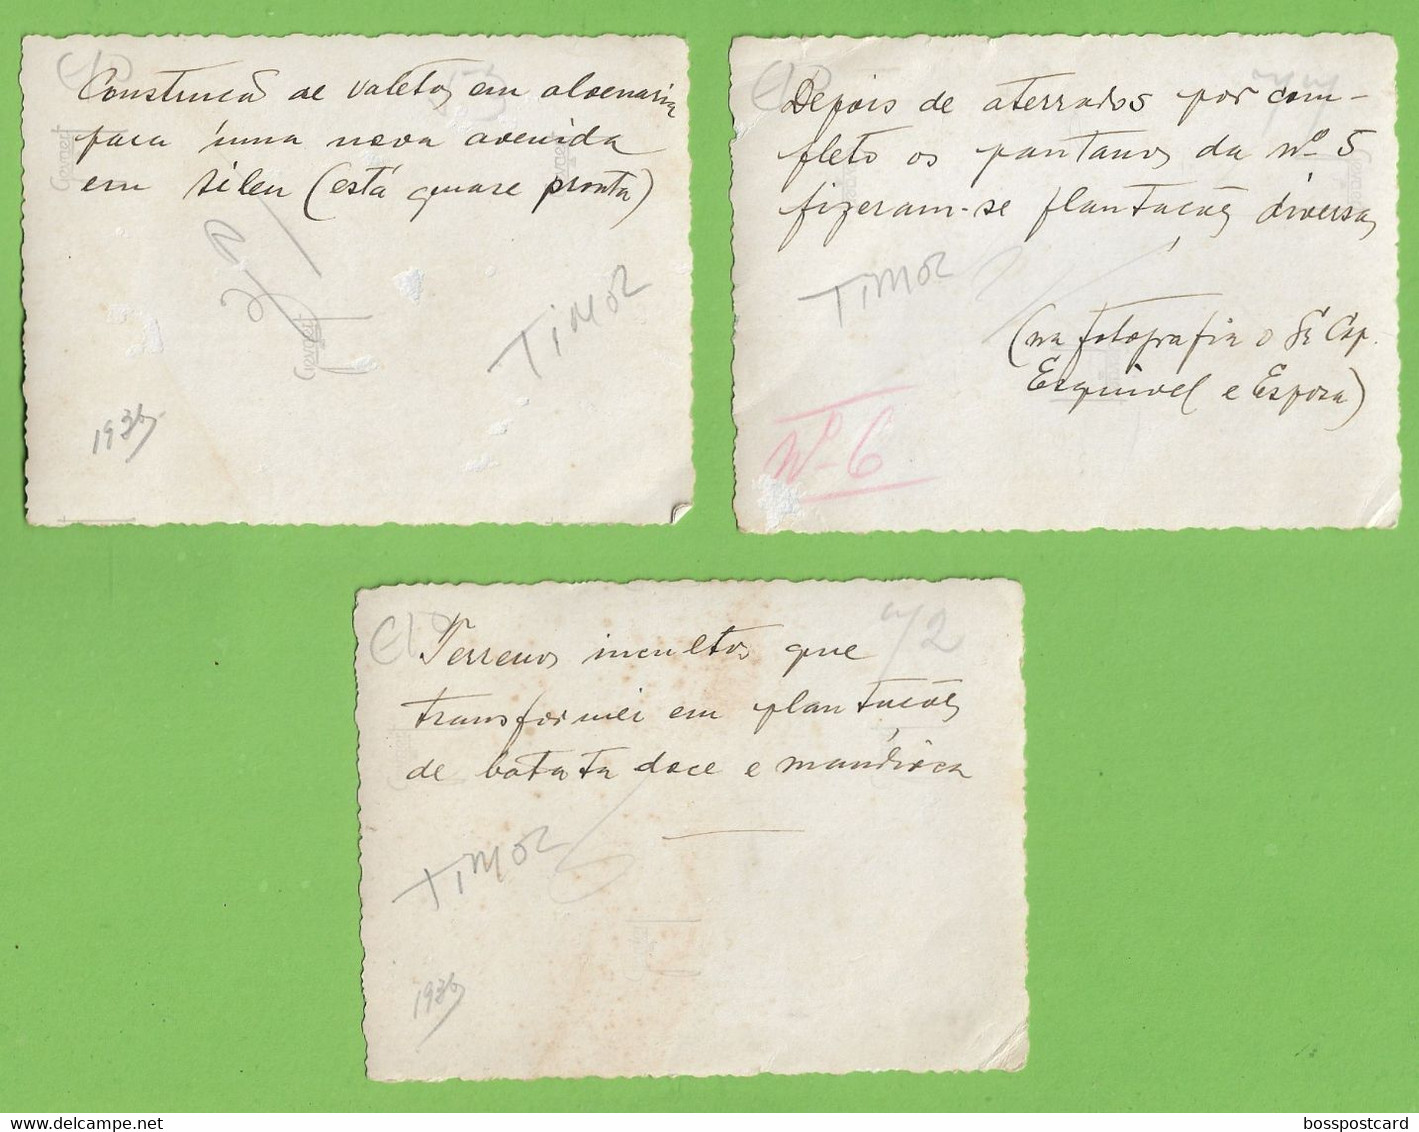 Construcã de valetas em alvenaria
para uma nova avenida
em Dileu (está quase pronta)
TIMOR
1936
Gevaert
Depois de aterrados por com-
pleto os pantanos da nº 5
fizeram-se plantações diversas
TIMOR
(na fotografia o Sr Cap.
Esquivel e Esposa)
Nº 6
Terrenos incultos que
transformei em plantações
de batata doce e mandioca
TIMOR
1936
bosspostcard